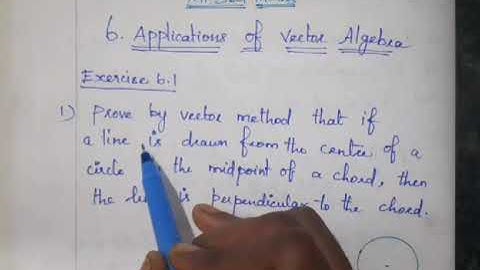 6. Applications of Vector Algebra
Exercise 6.1
1) Prove by vector method that if
a line is drawn from the centre of a
circle the midpoint of a chord, then
the is perpendicular to the chord.